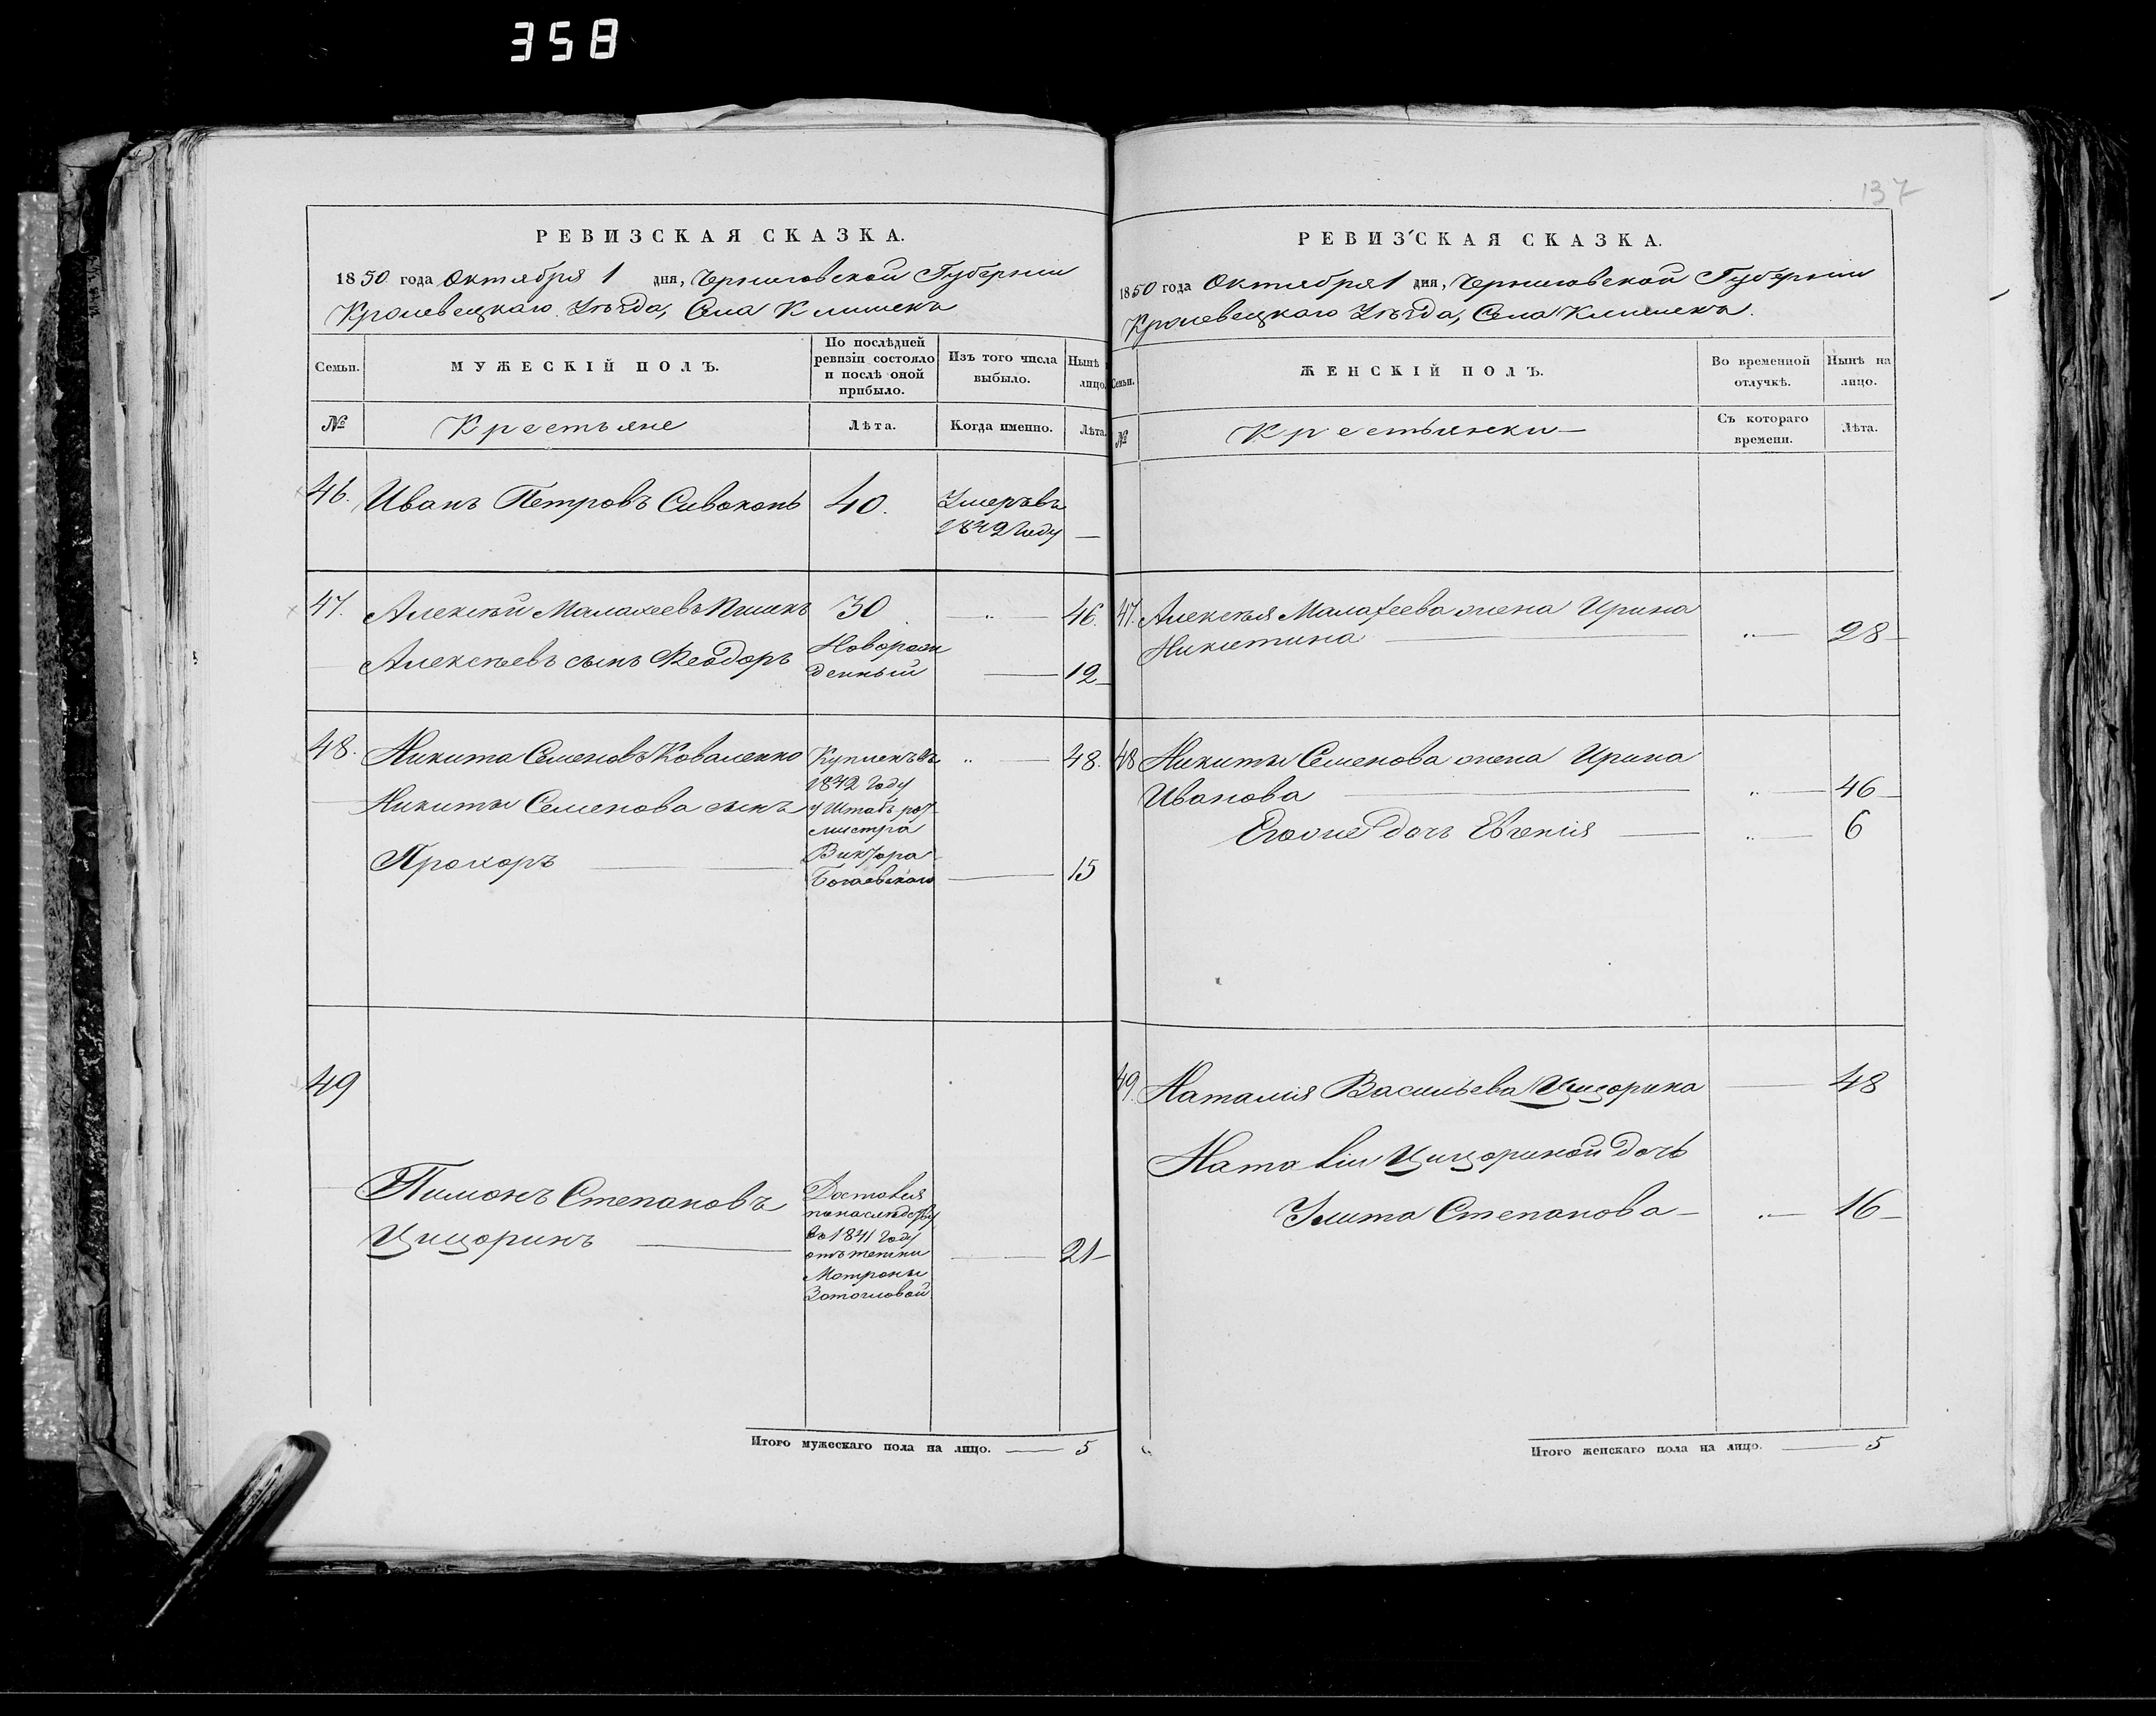 358
137
РЕВИЗСКАЯ СКАЗКА.
1850 года Октября 1 дня, Черниговской Губернии
Кролевецкаго Уѣзда, Села Клишекъ
Семьи.
МУЖЕСКІЙ ПОЛЪ.
По послѣдней
ревизіи состояло
и послѣ оной
прибыло.
Изъ того числа
выбыло.
Нынѣ
лицо.
№
Крестьяне
Лѣта.
Когда именно.
Лѣта.
46. Иванъ Петровъ Сивоконь 40. Умеръ въ —
1849 Году
47. Алексѣй Малахеевъ 30 46.
Алексѣевъ сынъ Феодоръ Новорож
денный 12
48. Никита Семеновъ Коваленко Купленъ въ 48.
1842 Году
Никиты Семенова сынъ у Штабъ рот
мистра
Прохоръ Виктора 15
49
Пимонъ Степановъ Достался
по наслѣдству
въ 1841 Году
Цицоринъ отъ тетки 21
Мотроны
Итого мужескаго пола на лицо. — 5
РЕВИЗСКАЯ СКАЗКА.
1850 года Октября 1 дня, Черниговской Губернии
Кролевецкаго Уѣзда, Села Клишекъ.
Семьи.
ЖЕНСКІЙ ПОЛЪ.
Во временной
отлучкѣ.
Нынѣ на
лицо.
№
Крестьянки
Съ котораго
времени.
Лѣта.
47. Алексѣя Малафеева жена Ирина
Никитина 28
48 Никиты Семенова жена Ирина
Иванова 46
Егоже дочь Евгенія 6
49. Наталія Васильева Цицорина 48
Наталіи Цицориной дочь
Улита Степанова 16
Итого женскаго пола на лицо. — 5